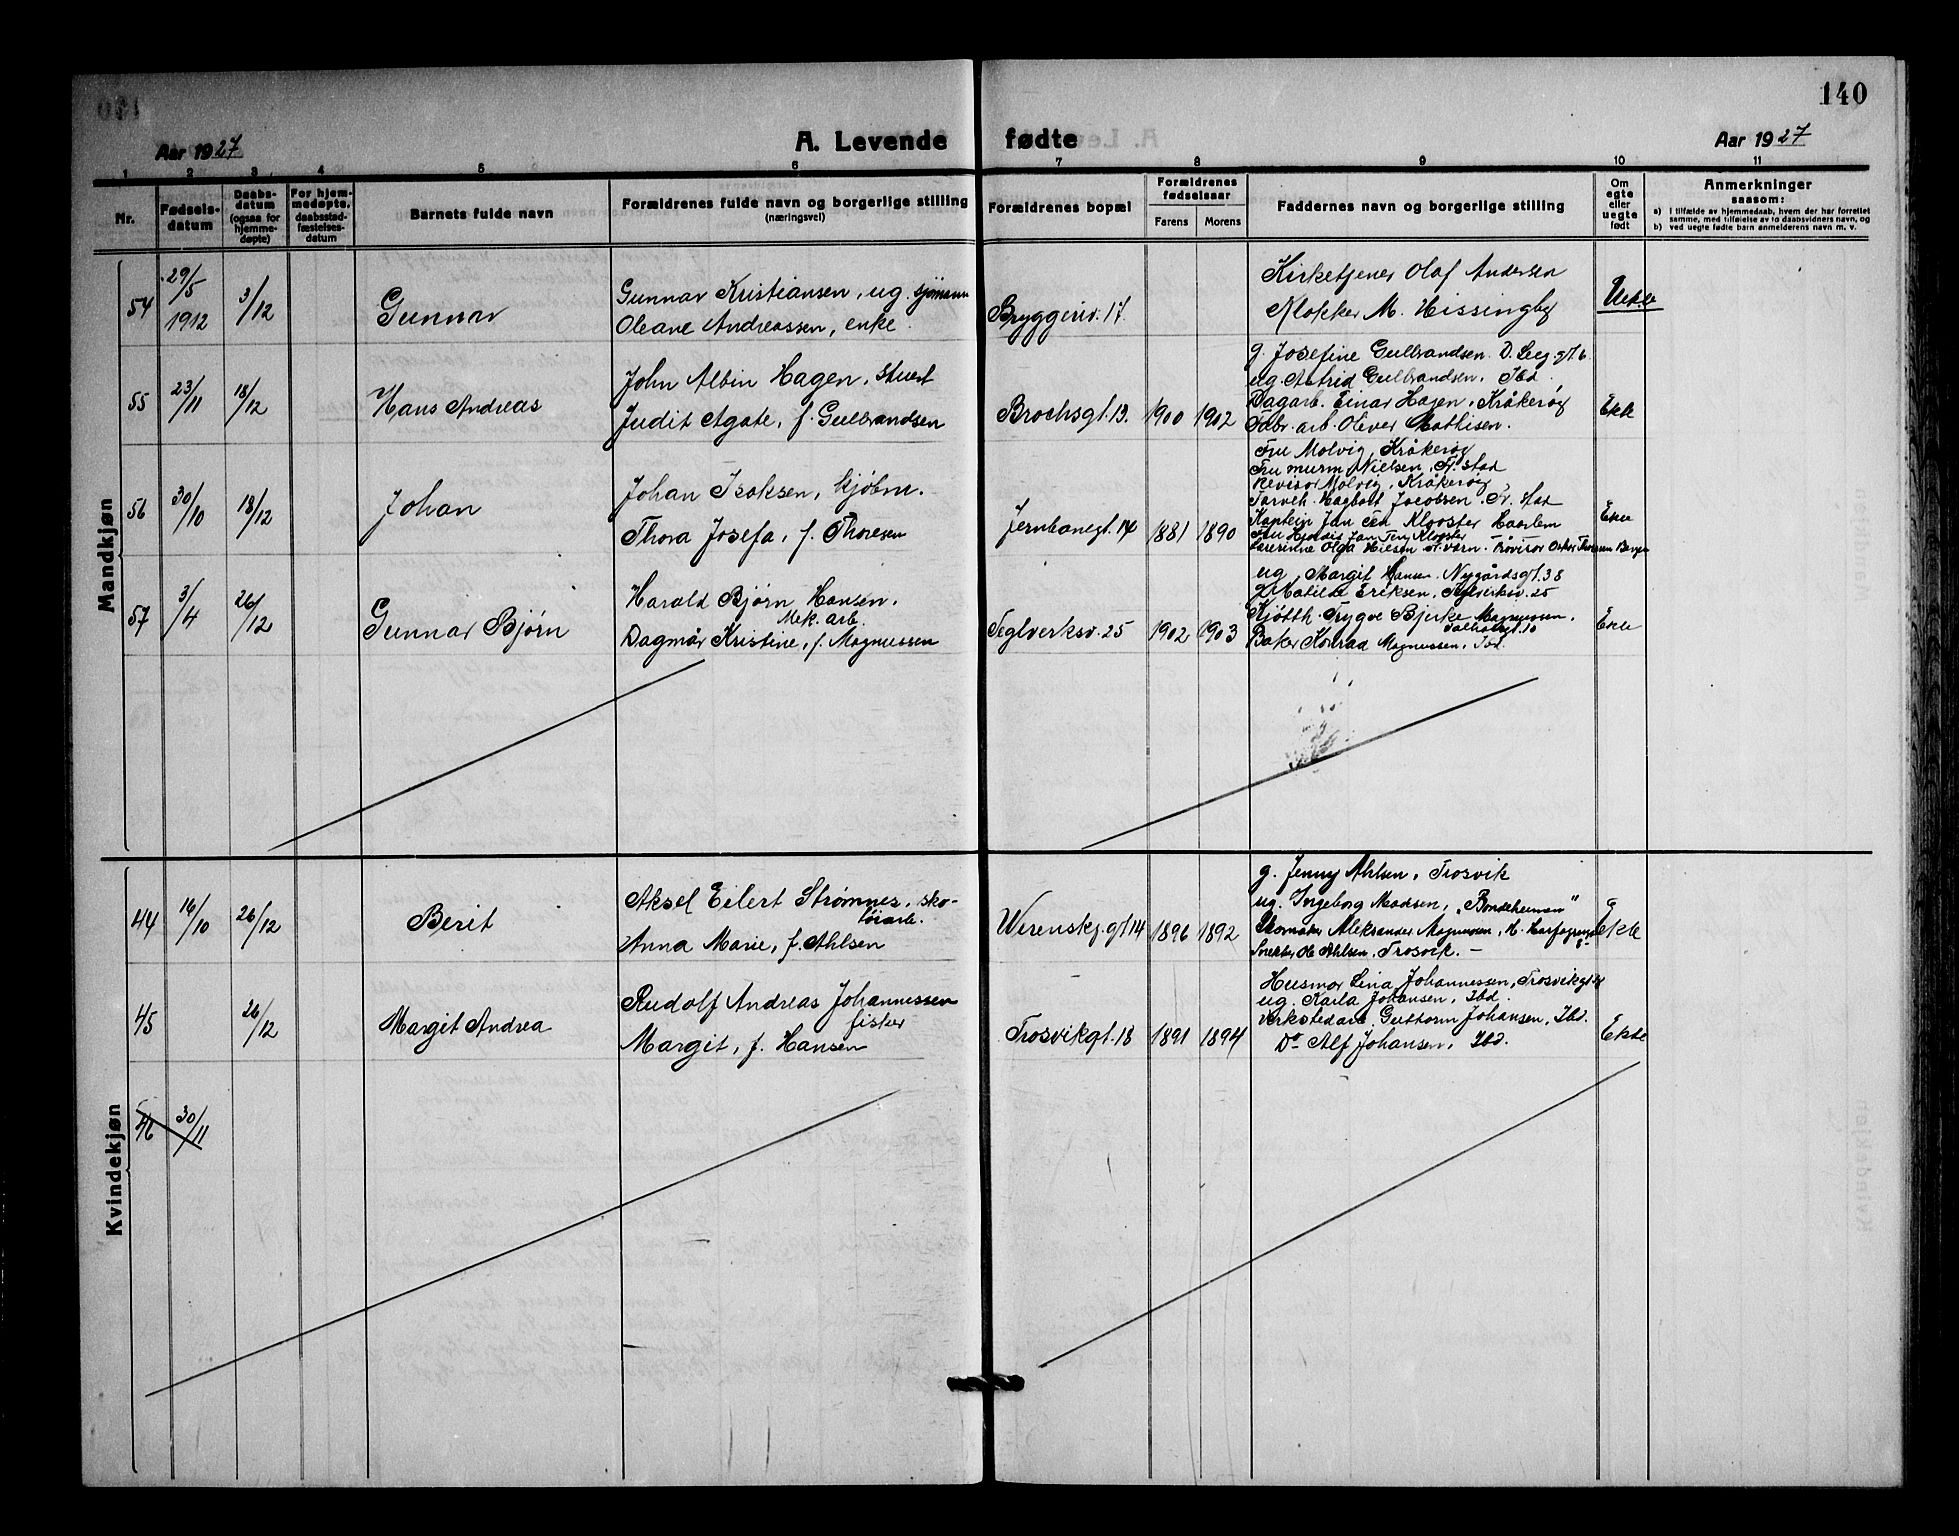 140
Aar 1927
A. Levende fødte
Aar 1927
1 2 3 4 5 6 7 8 9 10 11
Nr.
Fødsels-
datum
Daabs-
datum
(ogsaa for
hjemme-
døpte)
For hjem-
medøpte,
daabsstad-
fæstelses-
datum
Barnets fulde navn
Forældrenes fulde navn og borgerlige stilling
(næringsvei)
Forældrenes bopæl
Forældrenes
fødselsaar
Farens Morens
Faddernes navn og borgerlige stilling
Om
egte
eller
uegte
født
Anmerkninger
saasom:
a) I tilfælde av hjemmedaab, hvem der har forrettet
samme, med tilføielse av to daabsvidners navn, og
b) ved uegte fødte barn anmelderens navn m. v.
Mandkjøn
54
29/5
1912
3/12
Gunnar
Gunnar Kristiansen, ug. sjømann
Oleane Andreassen, enke.
Bryggeriv. 17.
Kirketjener Olaf Andersen
Klokker M. Hissingby
Uekte
55
23/11
18/12
Hans Andreas
John Albin Hagen, stuert
Judit Agate, f. Gulbrandsen
Brochsgt. 13.
1900 1902
g. Josefine Gulbrandsen. D. Leegt. 6.
ug. Astrid Gulbrandsen. Ibd.
Dagarb. Einar Hagen, Kråkerøy
Fabr. arb. Oliver Mathisen.
Ekte
56
30/10
18/12
Johan
Johan Isaksen, kjøbm.
Thora Josefa, f. Thoresen
Jernbanegt. 14
1881 1890
Fru Molvig, Kråkerøy
Fru murm. Nielsen, Fr.stad
Revisor Molvig, Kråkerøy
Jacobsen. Fr. stad
Kaptein Jan ten Klooster Haarlem
Fru Hjördis Jan Ten Klooster
Lærerinne Olga Nielsen Fr. værn. Provisor Oskar Thoresen Bergen
Ekte
57
3/4
26/12
Gunnar Bjørn
Harald Bjørn Hansen,
Mek. arb.
Dagmar Kristine, f. Magnussen
Teglverksv. 25
1902 1903
ug. Margit Hansen. Nygårdsgt. 38
g. Matilde Eriksen, Teglverksv. 25
Kjøtth. Trygve Bjerke Magnussen,
Baker Konrad Magnussen, Ibd.
Ekte
Kvindekjøn
44
16/10
26/12
Berit
Aksel Eilert Strømnes, sko-
tøiarb.
Anna Marie, f. Ahlsen
Werenskj.gt 14
1896 1892
g. Jenny Ahlsen, Trosvik
ug. Ingeborg Madsen, „Bondeheimen"
Skomaker Aleksander Magnussen, H. Harfagresgt
Snekker Ole Ahlsen, Trosvik. —
Ekte
45
26/12
Margit Andrea
Rudolf Andreas Johannessen
fisker
Margit, f. Hansen
Trosvikgt. 18
1891 1894
Husmor Lina Johannessen, Trosvikgt
ug. Karla Johansen, Ibd.
Verkstedarb. Guttorm Johansen, Ibd.
Do Alf Johansen, Ibd.
Ekte
46
30/11